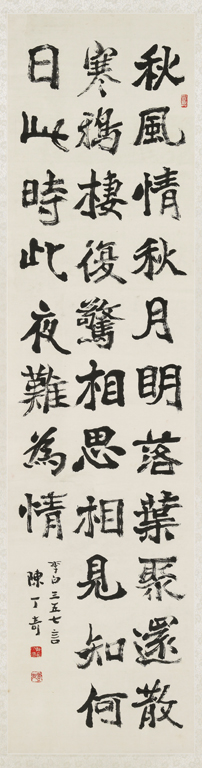 秋風情秋月明落葉聚還散
寒鴉棲復驚相思相見知何
日此時此夜難為情
李白三五七言
陳丁奇